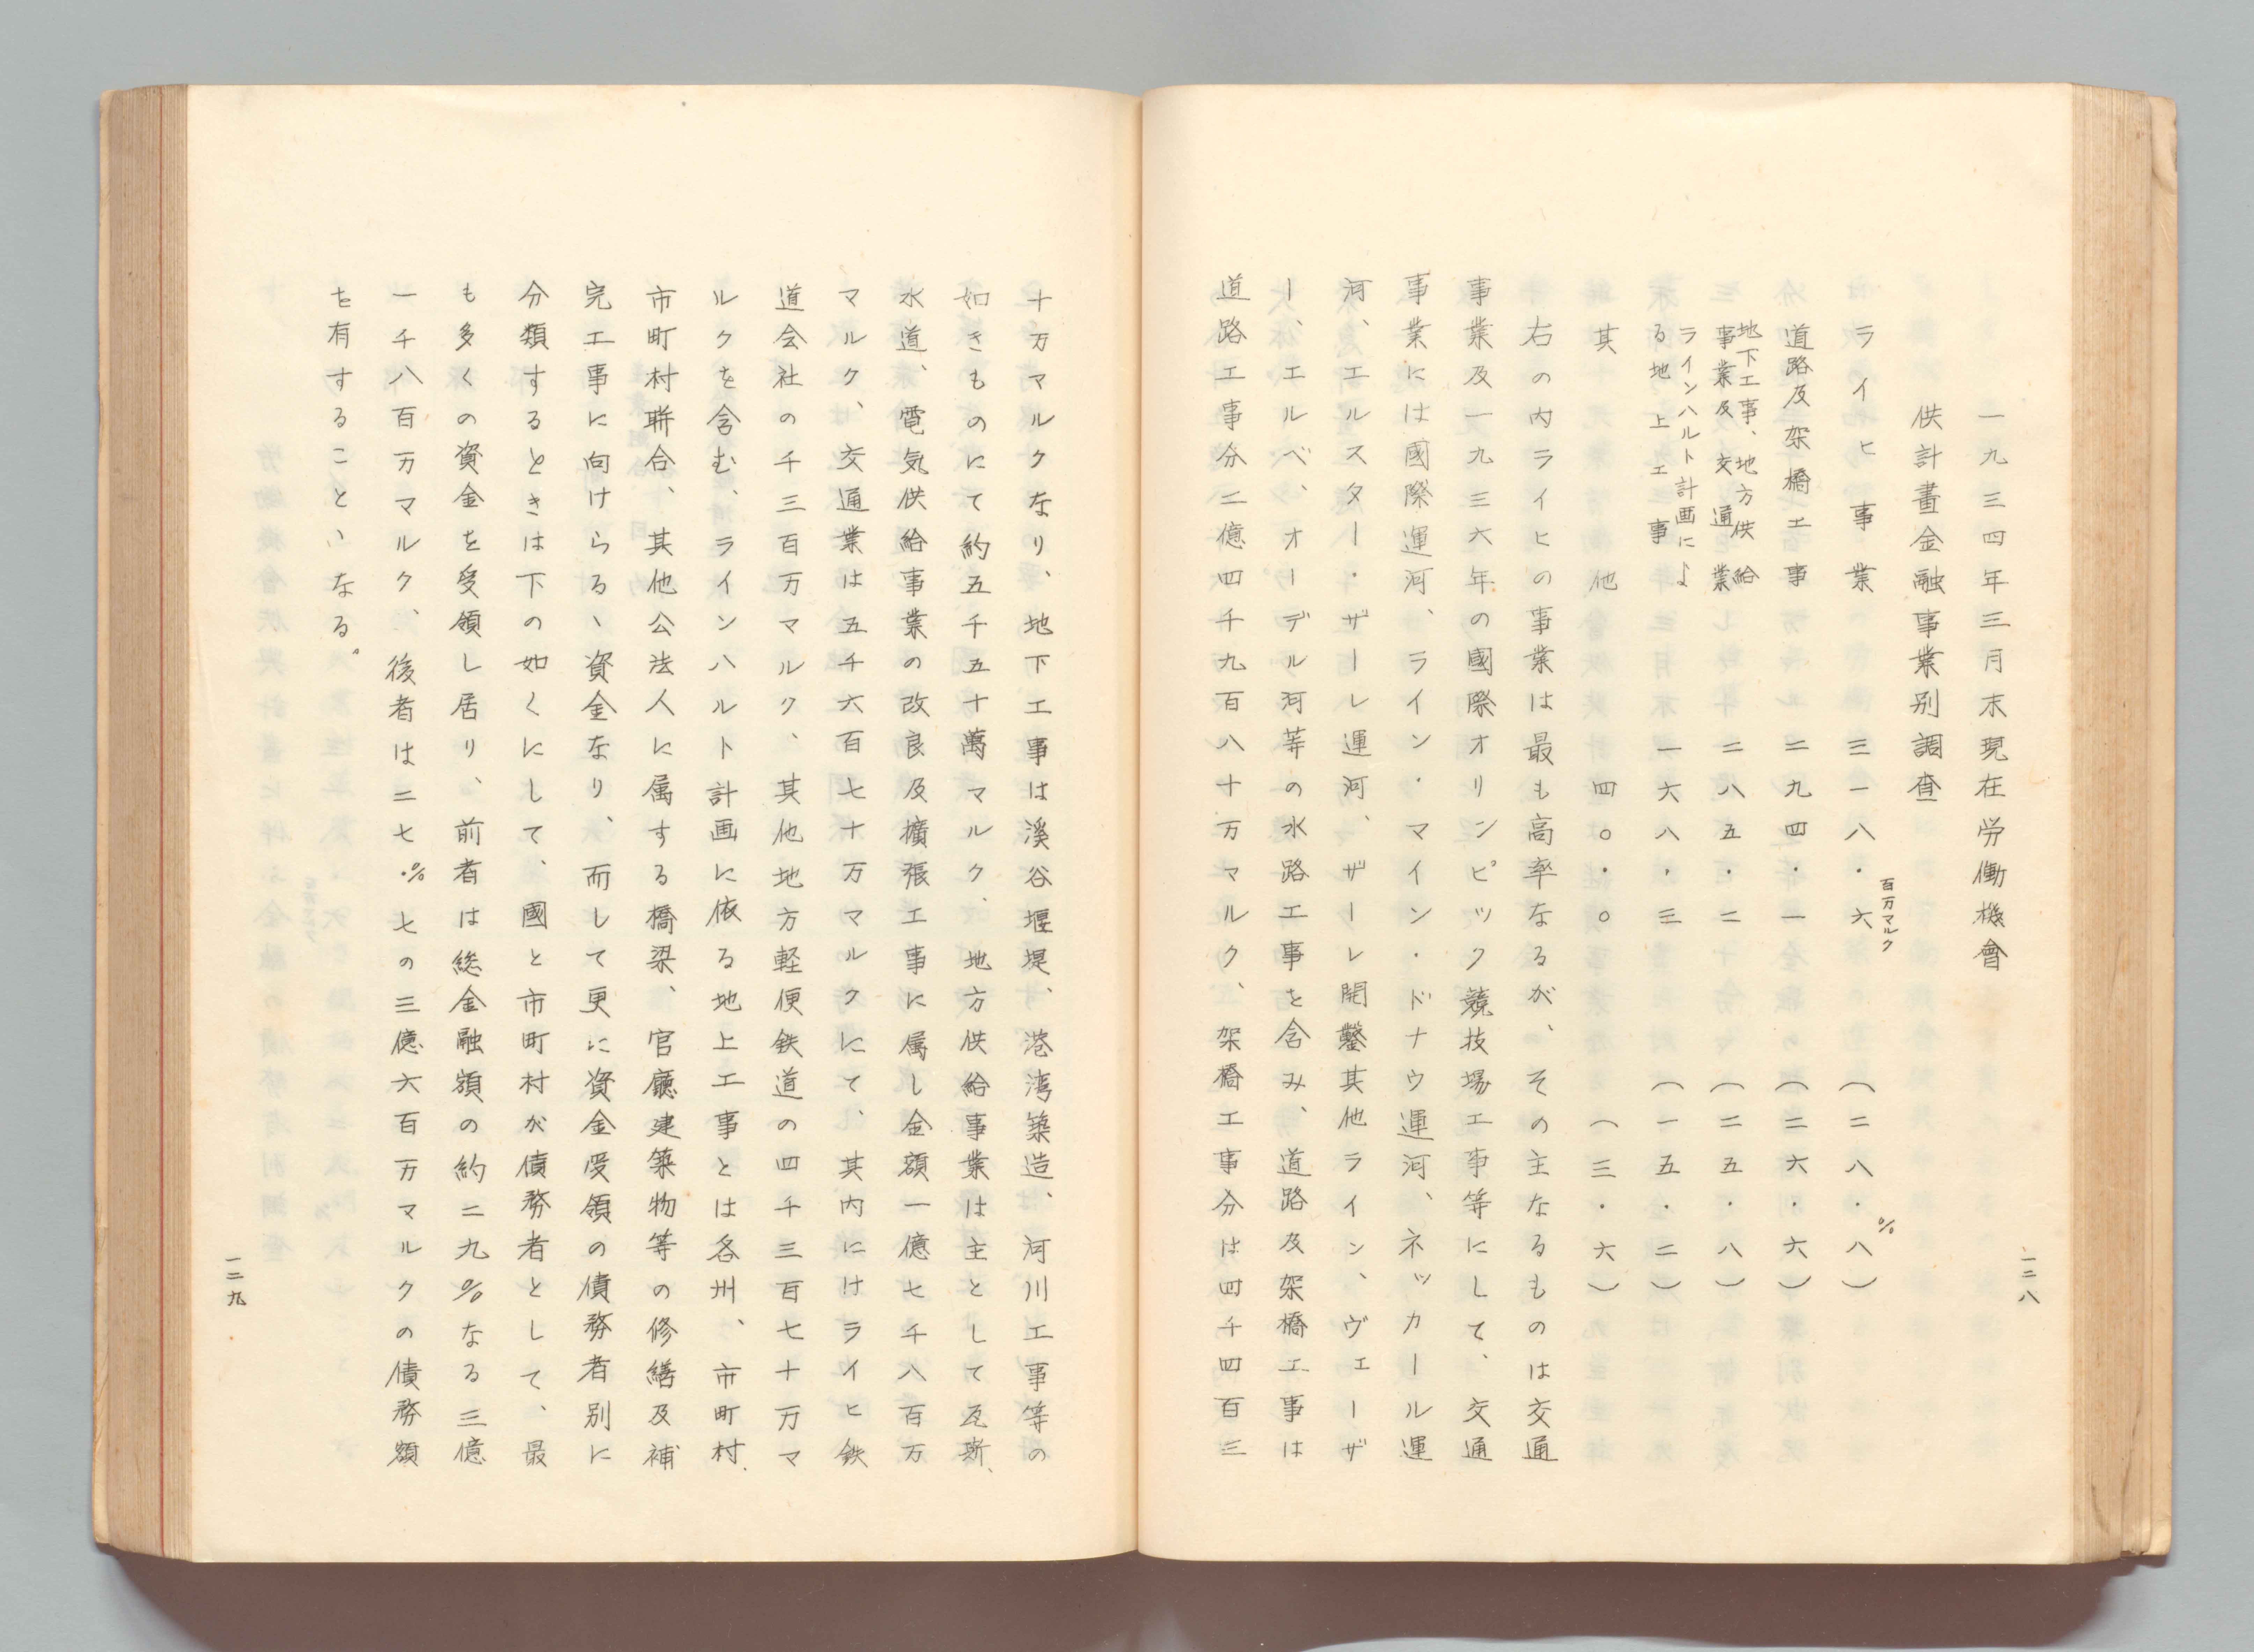 一二八
一九三四年三月末現在労働機會
供計畫金融事業別調査
百万マルク　%
ライヒ事業　三一八・六　（二八・八）
道路及架橋工事　二九四・一　（二六・六）
地下工事、地方供給
事業及交通業　二八五・二　（二五・八）
ラインハルト計画によ
る地上工事　一六八・三　（一五・二）
其他　四〇・〇　（三・六）
右の内ライヒの事業は最も高率なるが、その主なるものは交通
事業及一九三六年の國際オリンピック競技場工事等にして、交通
事業には國際運河、ライン・マイン・ドナウ運河、ネッカール運
河、エルスター・ザーレ運河、ザーレ開鑿其他ライン、ヴェーザ
ー、エルベ、オーデル河等の水路工事を含み、道路及架橋工事は
道路工事分二億四千九百八十万マルク、架橋工事分は四千四百三
十万マルクなり、地下工事は溪谷堰堤、港湾築造、河川工事等の
如きものにて約五千五十萬マルク、地方供給事業は主として瓦斯、
水道、電気供給事業の改良及擴張工事に属し金額一億七千八百万
マルク、交通業は五千六百七十万マルクにて、其内にはライヒ鉄
道会社の千三百万マルク、其他地方軽便鉄道の四千三百七十万マ
ルクを含む、ラインハルト計画に依る地上工事とは各州、市町村、
市町村聯合、其他公法人に属する橋梁、官廳建築物等の修繕及補
完工事に向けらるゝ資金なり、而して更に資金受領の債務者別に
分類するときは下の如くにして、國と市町村が債務者として、最
も多くの資金を受領し居り、前者は総金融額の約二九%なる三億
一千八百万マルク、後者は二七・%七の三億六百万マルクの債務額
を有することゝなる。
一二九